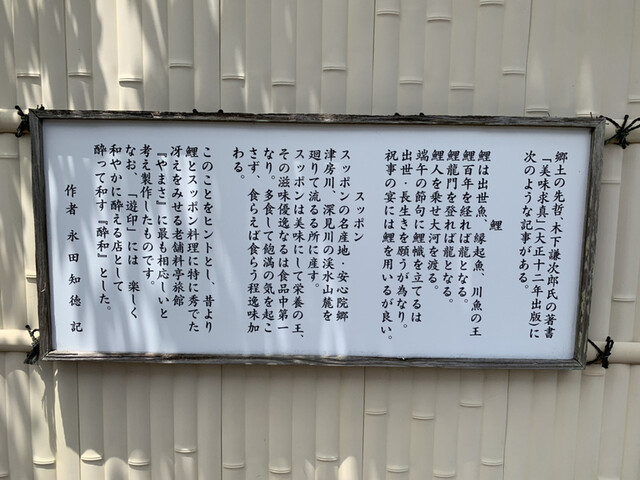 郷土の先哲、木下謙次郎氏の著書
「美味求真」(大正十二年出版)に
次のような記事がある。
鯉
鯉は出世魚、縁起魚、川魚の王
鯉百年を経れば龍となる。
鯉龍門を登れば龍となる。
鯉人を乗せ大河を渡る。
端午の節句に鯉幟を立てるは
出世・長生きを願うが為なり。
祝事の宴には鯉を用いるが良い。
スッポン
スッポンの名産地、安心院郷
津房川、深見川の渓水山麓を
廻りて流るる所に産す。
スッポンは美味にして栄養の王、
その滋味優逸なるは食品中第一
なり。多食して飽満の気を起こ
さず、食らえば食らう程逸味加
わる。
このことをヒントとし、昔より
鯉とスッポン料理に特に秀でた
冴えをみせる老舗料亭旅館
『やまさ』に最も相応しいと
考え製作したものです。
なお、「遊印」には 楽しく
和やかに酔える店として
酔って和す『酔和』とした。
作者 永田知徳 記